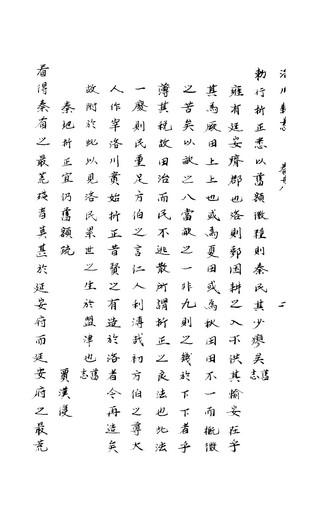 洛川縣志
二
勅行折正悉以舊額徵糧則秦民其少瘳矣舊志
雍有延安廣郡也洛則鄭國耕之入不洪其輸妄在乎
其為厥田上上也或為夏田或為秋田田不一而概徵
之苦矣以畝之八當畝之一非九則之錢於下下者乎
薄其稅故田治而民不逃散所謂折正之良法也此法
一廢則民重足方伯之言仁人利溥哉初方伯之尊大
人作宰洛川實始折正昔賢之有造於洛者令再造矣
故附於此以見洛民累世之生於盟津也舊志
秦地折正宜仍舊額疏 賈漢復
看得秦省之最荒殘者莫甚於延安府而延安府之最荒